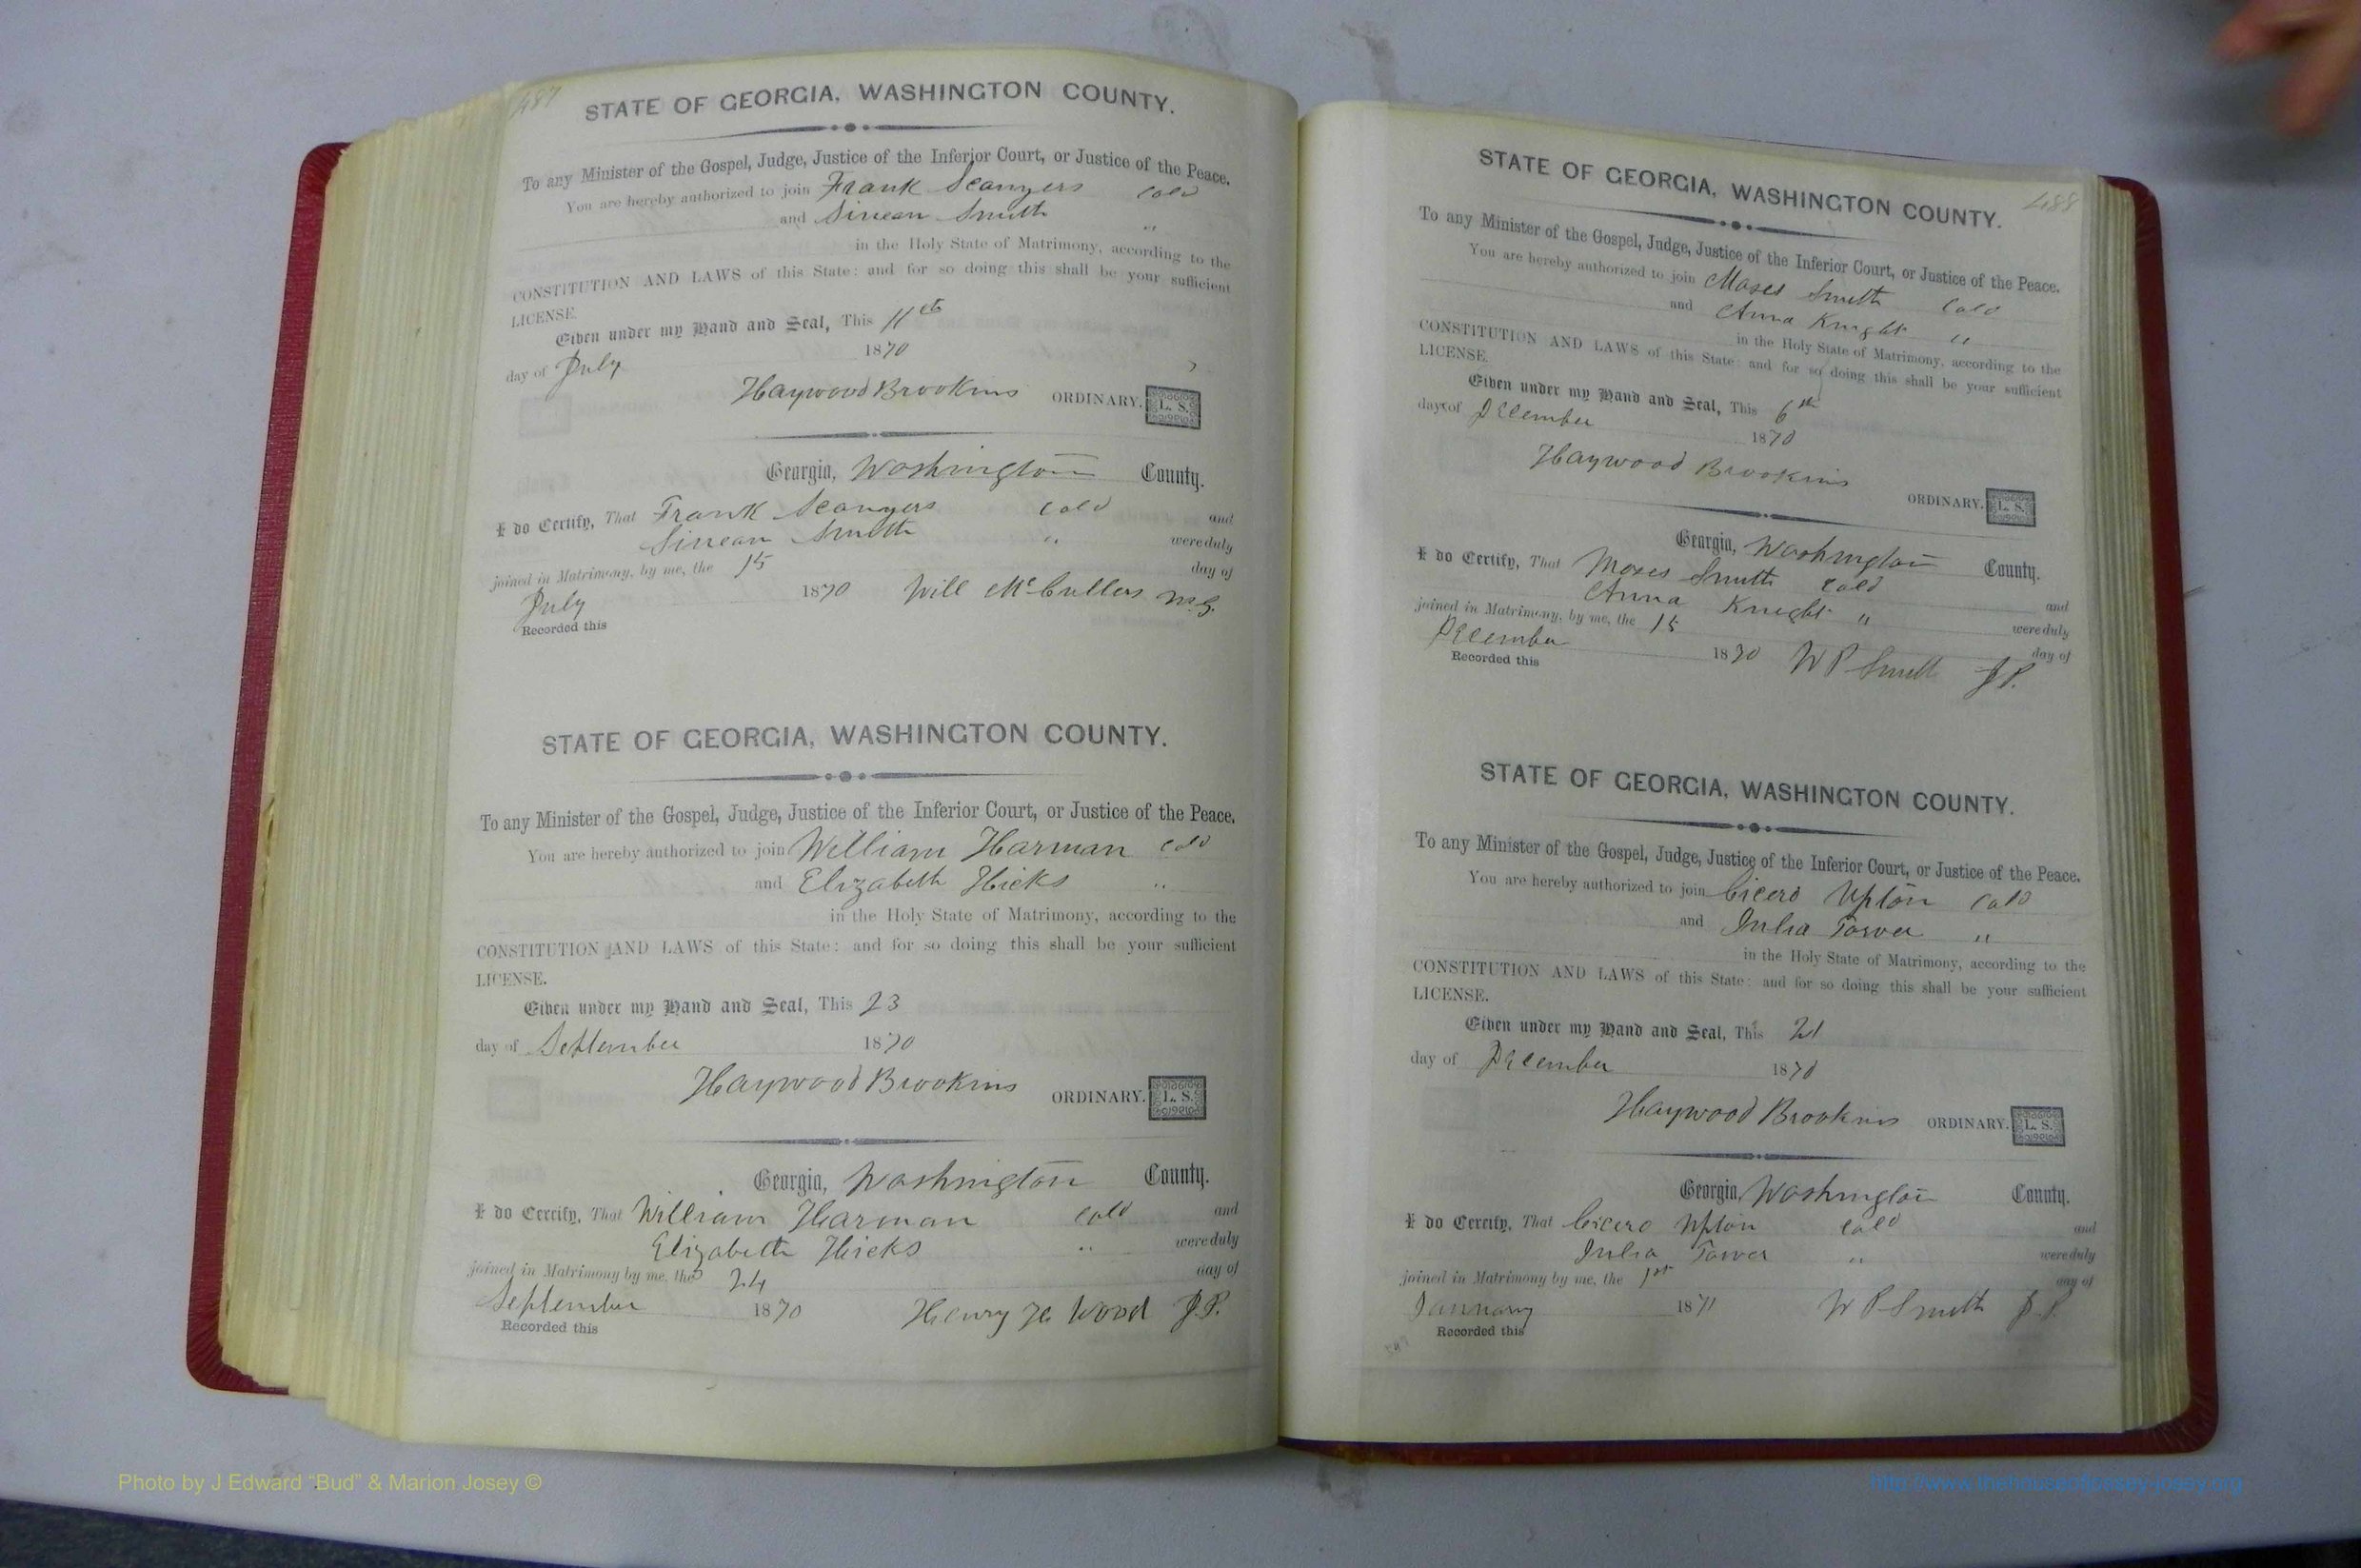 487
STATE OF GEORGIA, WASHINGTON COUNTY.
To any Minister of the Gospel, Judge, Justice of the Inferior Court, or Justice of the Peace.
You are hereby authorized to join Frank Scanyers cold
and Sinean Smith "
in the Holy State of Matrimony, according to the
CONSTITUTION AND LAWS of this State: and for so doing this shall be your sufficient
LICENSE.
Given under my Hand and Seal, This 11th
day of July 1870
Haywood Brookins ORDINARY. L. S.
Georgia, Washington County.
I do Certify, That Frank Scanyers cold and
Sinean Smith " were duly
joined in Matrimony, by me, the 15 day of
July 1870 Will McCullers M.G.
Recorded this
STATE OF GEORGIA, WASHINGTON COUNTY.
To any Minister of the Gospel, Judge, Justice of the Inferior Court, or Justice of the Peace.
You are hereby authorized to join William Harman cold
and Elizabeth Hicks "
in the Holy State of Matrimony, according to the
CONSTITUTION AND LAWS of this State: and for so doing this shall be your sufficient
LICENSE.
Given under my Hand and Seal, This 23
day of September 1870
Haywood Brookins ORDINARY. L. S.
Georgia, Washington County.
I do Certify, That William Harman cold and
Elizabeth Hicks " were duly
joined in Matrimony by me, the 24 day of
September 1870 Henry H Wood J.P.
Recorded this
488
STATE OF GEORGIA, WASHINGTON COUNTY.
To any Minister of the Gospel, Judge, Justice of the Inferior Court, or Justice of the Peace.
You are hereby authorized to join Moses Smith cold
and Anna Knight "
in the Holy State of Matrimony, according to the
CONSTITUTION AND LAWS of this State: and for so doing this shall be your sufficient
LICENSE.
Given under my Hand and Seal, This 6th
day of December 1870
Haywood Brookins
ORDINARY. L. S.
Georgia, Washington County.
I do Certify, That Moses Smith cold and
Anna Knight " were duly
joined in Matrimony, by me, the 15 day of
December 1870 W P Smith J P.
Recorded this
STATE OF GEORGIA, WASHINGTON COUNTY.
To any Minister of the Gospel, Judge, Justice of the Inferior Court, or Justice of the Peace.
You are hereby authorized to join Cicero Upton cold
and Julia Tarver "
in the Holy State of Matrimony, according to the
CONSTITUTION AND LAWS of this State: and for so doing this shall be your sufficient
LICENSE.
Given under my Hand and Seal, This 21
day of December 1870
Haywood Brookins ORDINARY. L. S.
Georgia, Washington County.
I do Certify, That Cicero Upton cold and
Julia Tarver " were duly
joined in Matrimony by me, the 1st day of
January 1871 W P Smith J.P.
Recorded this
Photo by J Edward "Bud" & Marion Josey ©